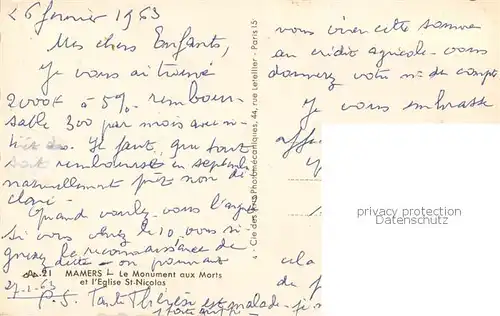 26 février 1963
Mes chers Enfants,
Je vous ai trouvé
2000F à 5% rembour-
sable 300 par mois avec in-
Il faut que tout
soit remboursé en septembre
naturellement prêt non dé
claré -
Quand voulez-vous l'argent
Si vous venez le 10, vous si-
gnerez la reconnaissance de
dette - on pourrait
A. 21 MAMERS - Le Monument aux Morts
et l'Eglise St-Nicolas
27.2.63
P.S. Tante Thérèse est malade -
4 - Cie des Arts Photomécaniques, 44, rue Letellier - Paris 15
vous virer cette somme
au crédit agricole - vous
donnerez votre n° de compte
Je vous embrasse
privacy protection
watermark